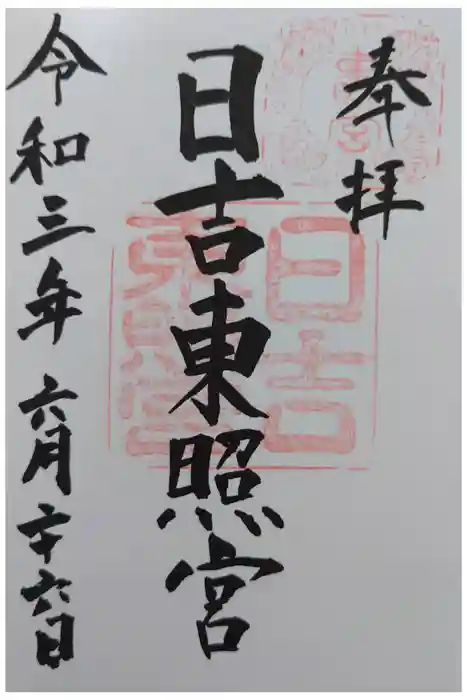 奉拝
日吉東照宮
日吉
東照宮
令和三年六月二十六日